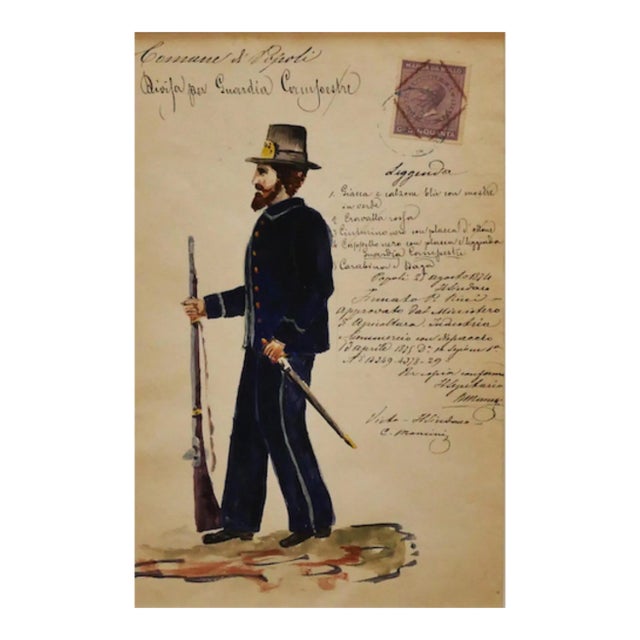 Comune di Popoli
Divisa per Guardia Campestre
MARCA DA BOLLO
CINQUANTA
Leggenda
1. Giacca e calzone blù con mostre
in verde
2 Cravatta rossa
3 Cinturino nero con placca d'ottone
4 Cappello nero con placca e leggenda
Guardia Campestre
5) Carabina e Daga
Popoli 25 agosto 1874
Il Sindaco
Firmato P. Ricci
approvato dal Ministero
d'Agricoltura Industria
e Commercio con dispaccio
Aprile 1875
No 12349-4378-29
Per copia conforme
Il Segretario
Visto - Il Sindaco
C. Mancini